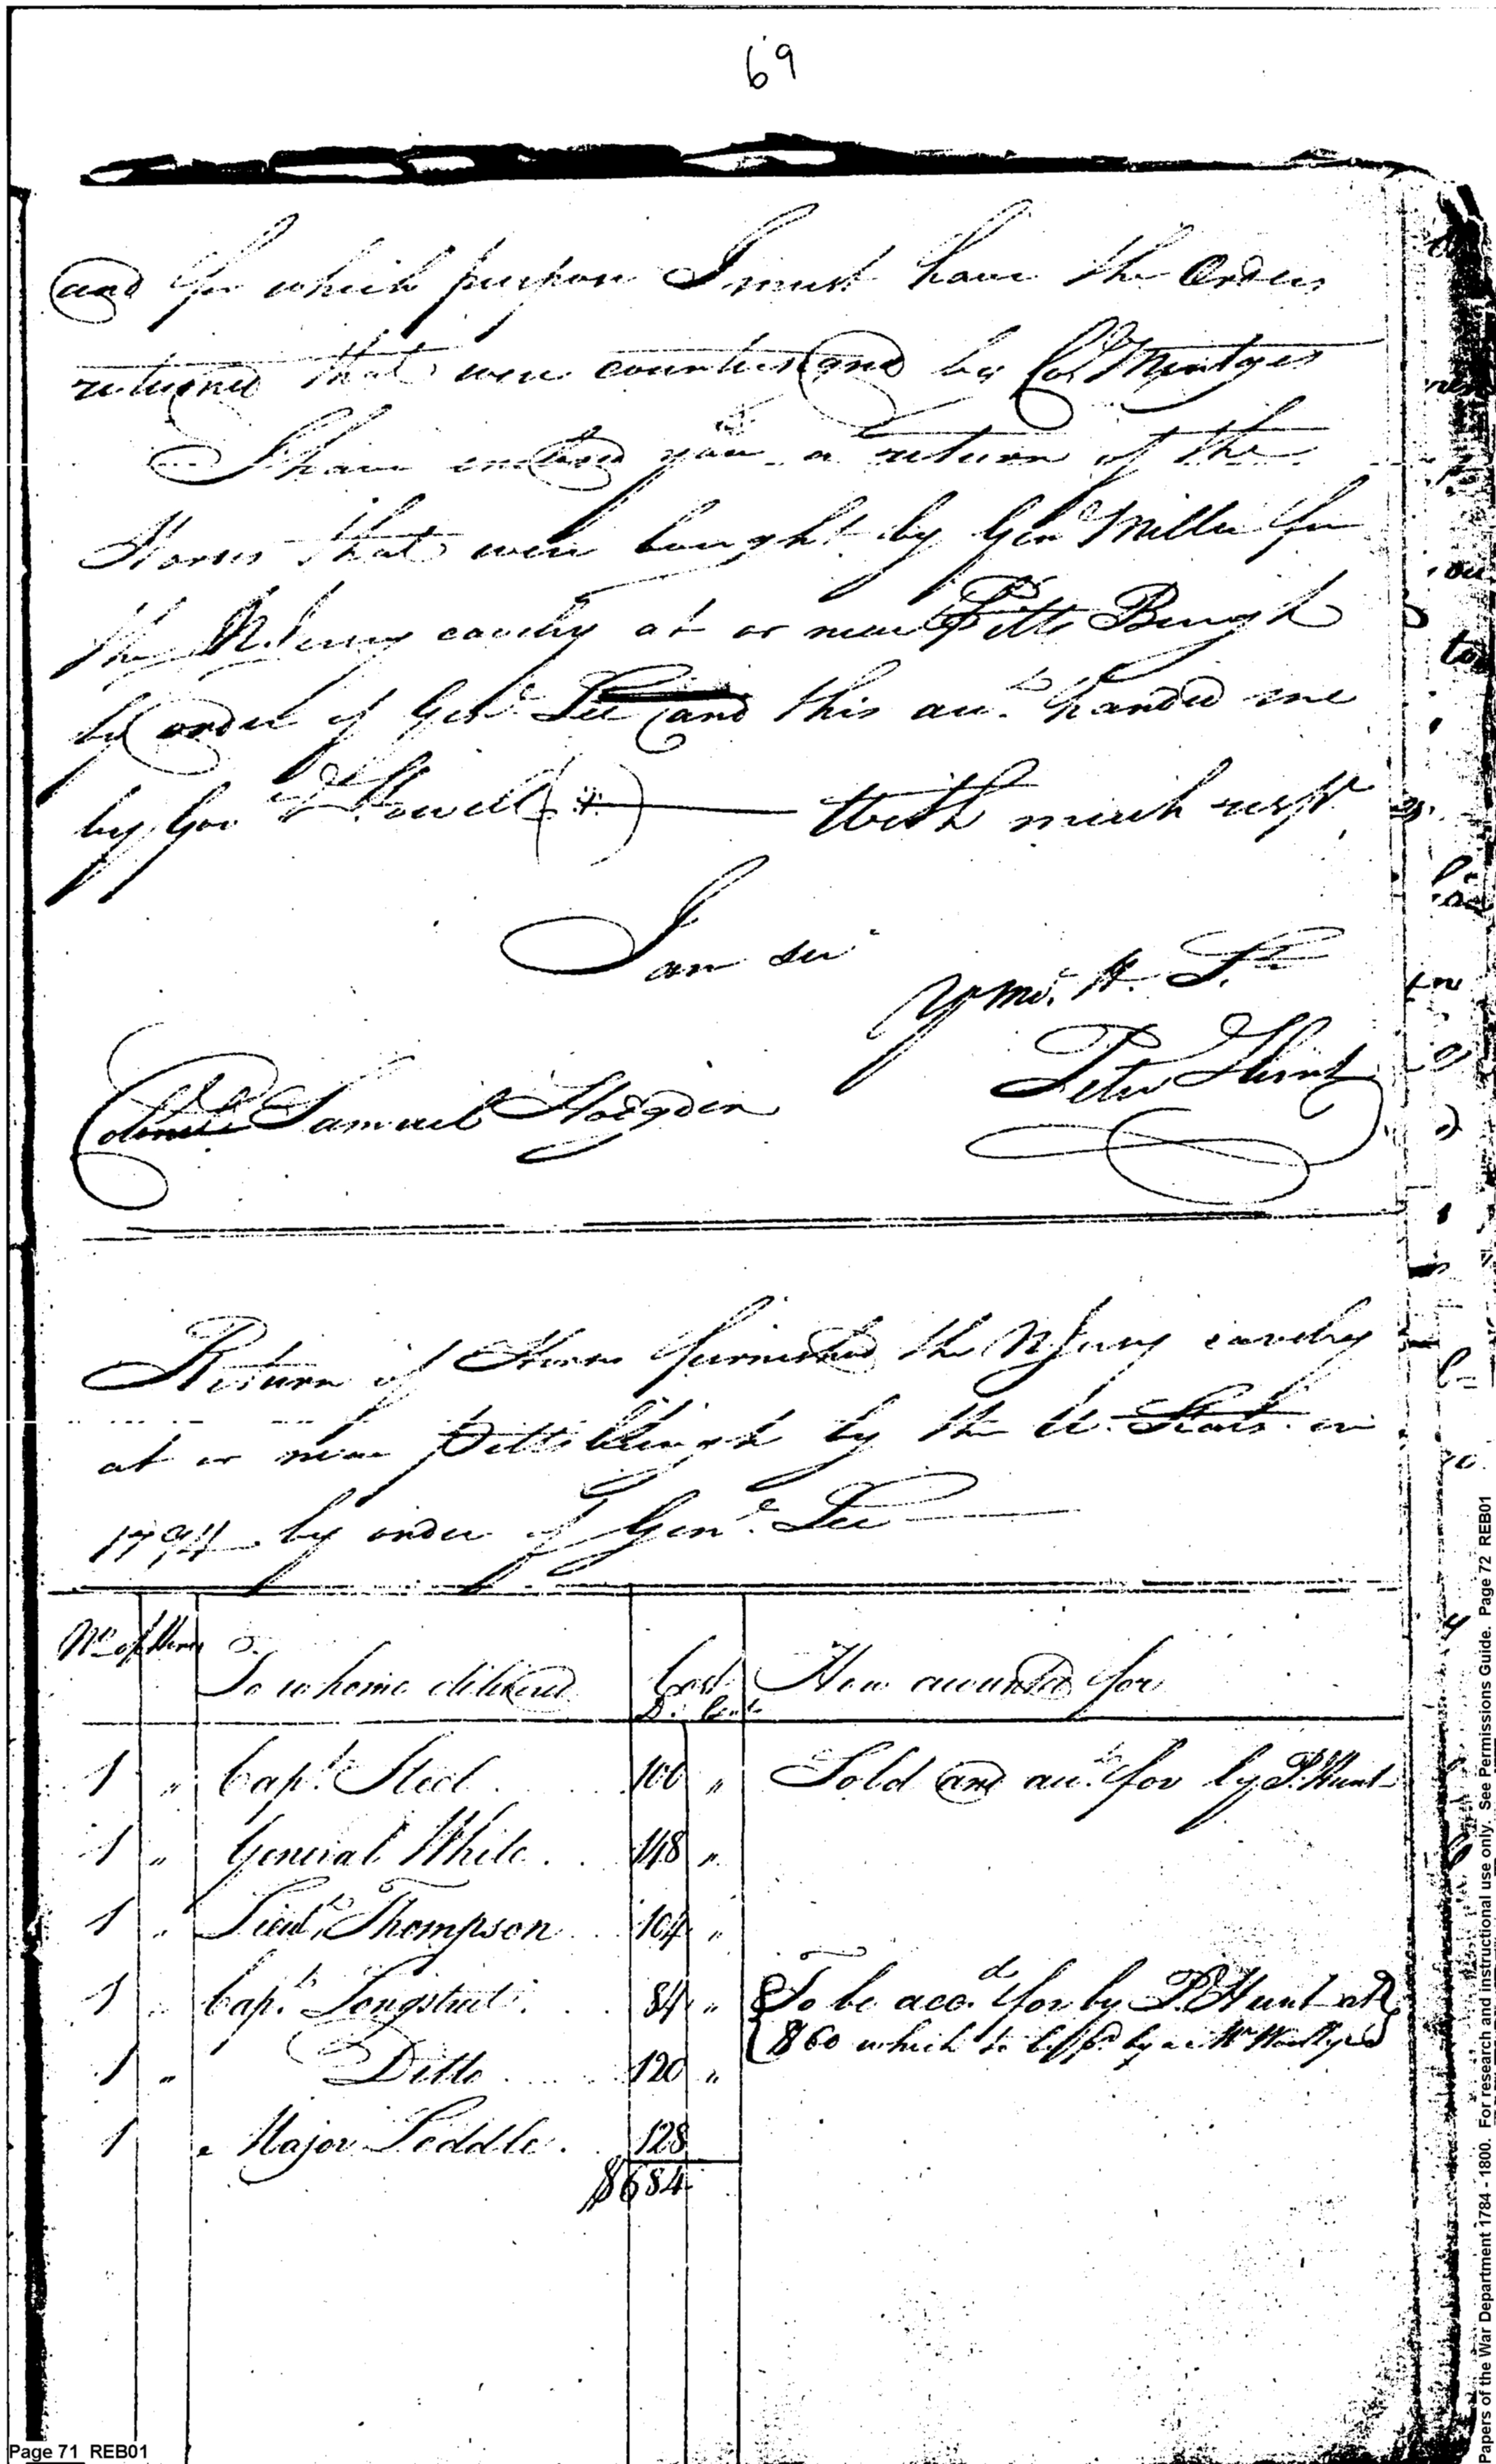 69
and for which purpose I must have the Orders
returned that were countersigned by Col Mentges
I have enclosed you a return of the
Horses that were bought by Genl Miller for
the N. Jersey cavelry at or near Pitts Burgh
by order of Genl. Lee and this acct. handed me
by Gov Howell (#) — With much respt
I am sir
Yr mo. H. St
Peter Hunt
Colonel Samuel Hodgden
Return of Horses furnished the N Jersey cavelry
at or near Pittsburgh by the U. States in
1794 by order of Genl. Lee —
No of Horses To whome delivered Cost How accounted for
D. Cents
1 " Capt. Steel . . . 100 " Sold and acct. for by P. Hunt
1 " General White . . . 148 "
1 " Lieut. Thompson . . 104 "
1 " Capt. Longstreet . . . 84 " To be accd. for by P. Hunt at
$60 which to be by a Mr
1 " Ditto . . . . 120 "
1 " Major Leddle . . 128
$684
Page 71 REB01
Papers of the War Department 1784 - 1800. For research and instructional use only. See Permissions Guide. Page 72 REB01